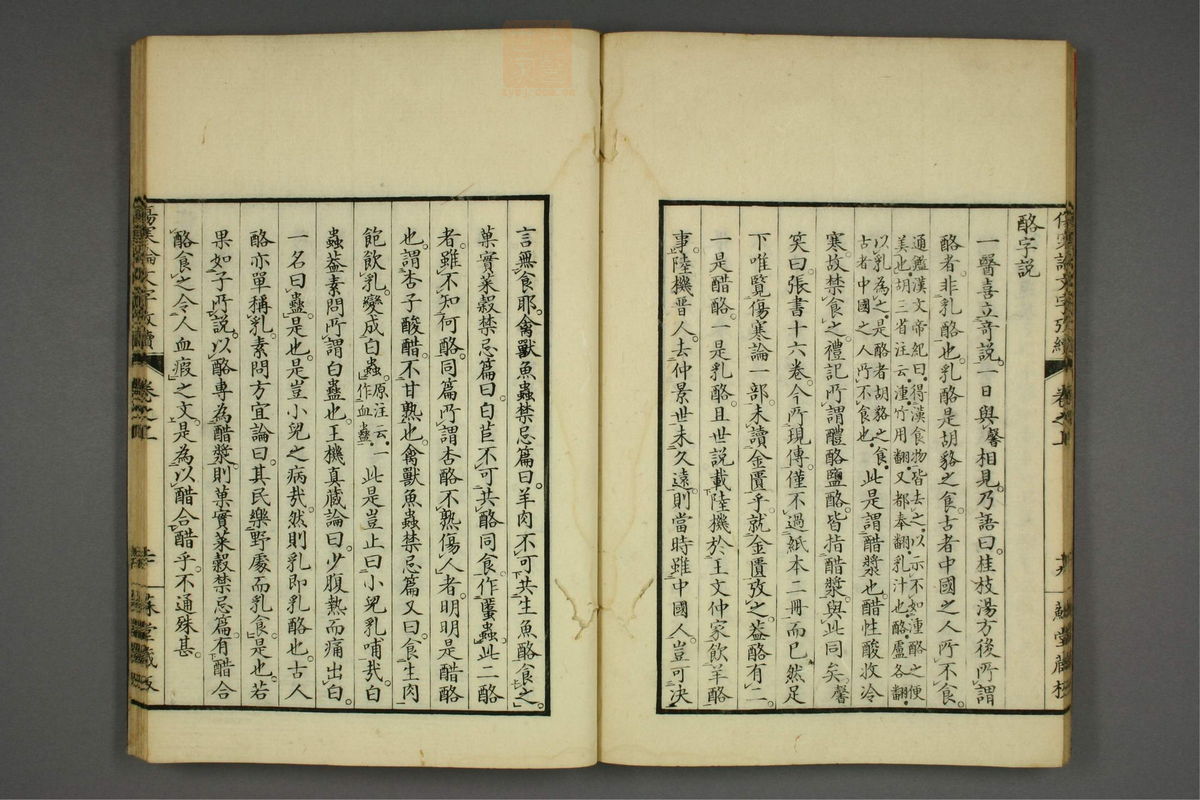 酪字説
一醫喜立奇説。一日與馨相見。乃語曰。桂枝湯方後所謂
酪者。非乳酪也。乳酪是胡貉之食。古者中國之人所不食。
通鑑漢文帝紀曰。得漢食物皆去之。以示不如湩酪之便
美也。胡三省注云。湩竹用翻。又都奉翻。乳汁也。酪盧各翻。
以乳為之。是酪者胡貉之食。
古者中國之人所不食也。
此是謂醋漿也。醋性酸收冷
寒。故禁食之。禮記所謂醴酪鹽酪。皆指醋漿。與此同矣。馨
笑曰。張書十六卷。今所現傳。僅不過紙本二冊而已。然足
下唯覽傷寒論一部。未讀金匱乎。就金匱攷之。葢酪有二。
一是醋酪。一是乳酪。且世説載陸機於王文仲家飲羊酪
事。陸機晉人。去仲景世未久遠。則當時雖中國人。豈可決
言無食耶。禽獸魚蟲禁忌篇曰。羊肉不可共生魚酪食之。
菓實菜穀禁忌篇曰。白苣不可共酪同食。作䘌蟲。此二酪
者。雖不知何酪。同篇所謂杏酪不熟傷人者。明明是醋酪
也。謂杏子酸醋。不甘熟也。禽獸魚蟲禁忌篇又曰。食生肉
飽飲乳。變成白蟲。
原注云。一
作血蠱。
此是豈止曰小兒乳哺哉。白
蟲葢素問所謂白蠱也。王機真藏論曰。少腹熱而痛出白。
一名曰蠱。是也。是豈小兒之病哉。然則乳即乳酪也。古人
酪亦單稱乳。素問方宜論曰。其民樂野處而乳食。是也。若
果如子所説。以酪專為醋漿。則菓實菜穀禁忌篇。有醋合
酪食之令人血瘕之文。是為以醋合醋乎。不通殊甚。
卷之上